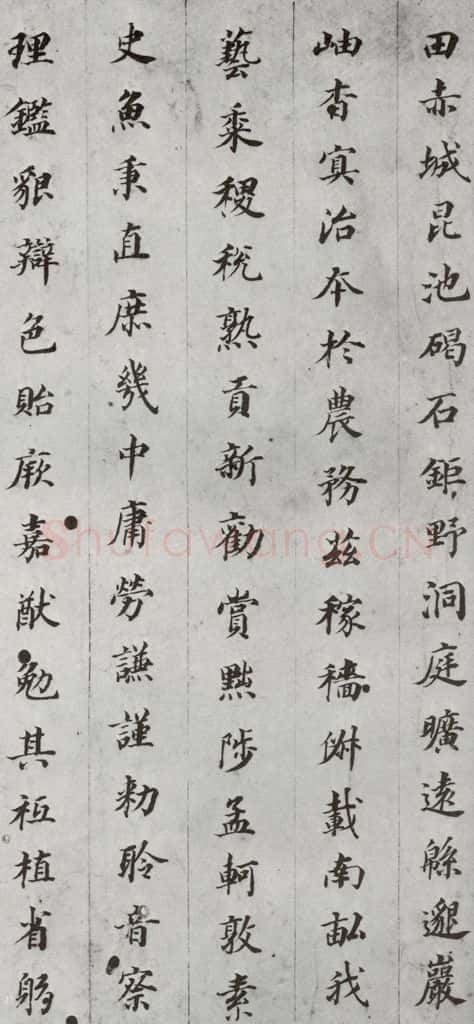 田赤城昆池碣石鉅野洞庭曠遠緜邈巖
岫杳冥治本於農務茲稼穡俶載南畝我
藝黍稷稅熟貢新勸賞黜陟孟軻敦素
史魚秉直庶幾中庸勞謙謹勅聆音察
理鑑貌辯色貽厥嘉猷勉其祗植省躬
Shufawang.CN